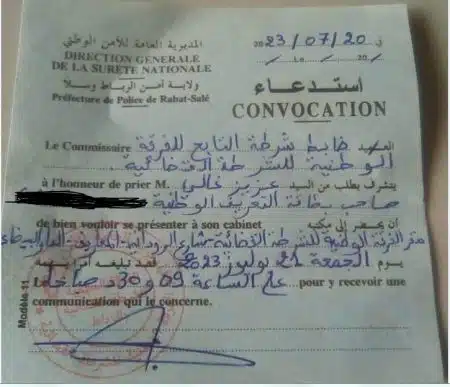 المديرية العامة للأمن الوطني
DIRECTION GENERALE
DE LA SURETE NATIONALE
ولاية أمن الرباط وسلا
Préfecture de Police de Rabat-Salé
2023/07/20 في
Le, 20
استدعاء
CONVOCATION
Le Commissaire ضابط شرطة التابع للفرقة
الوطنية للشرطة القضائية
à l'honneur de prier M. يتشرف بطلب من السيد عزيز غالي
صاحب بطاقة التعريف الوطنية
de bien vouloir se présenter à son cabinet أن يحضر إلى مكتبه
مقر الفرقة الوطنية للشرطة القضائية شارع الروداني المعاريف الدار البيضاء
يوم الجمعة 21 يوليوز 2023 قصد تبليغ أمر يهمه
على الساعة 09 و30 د صباحا pour y recevoir une
communication qui le concerne.
Modèle 11